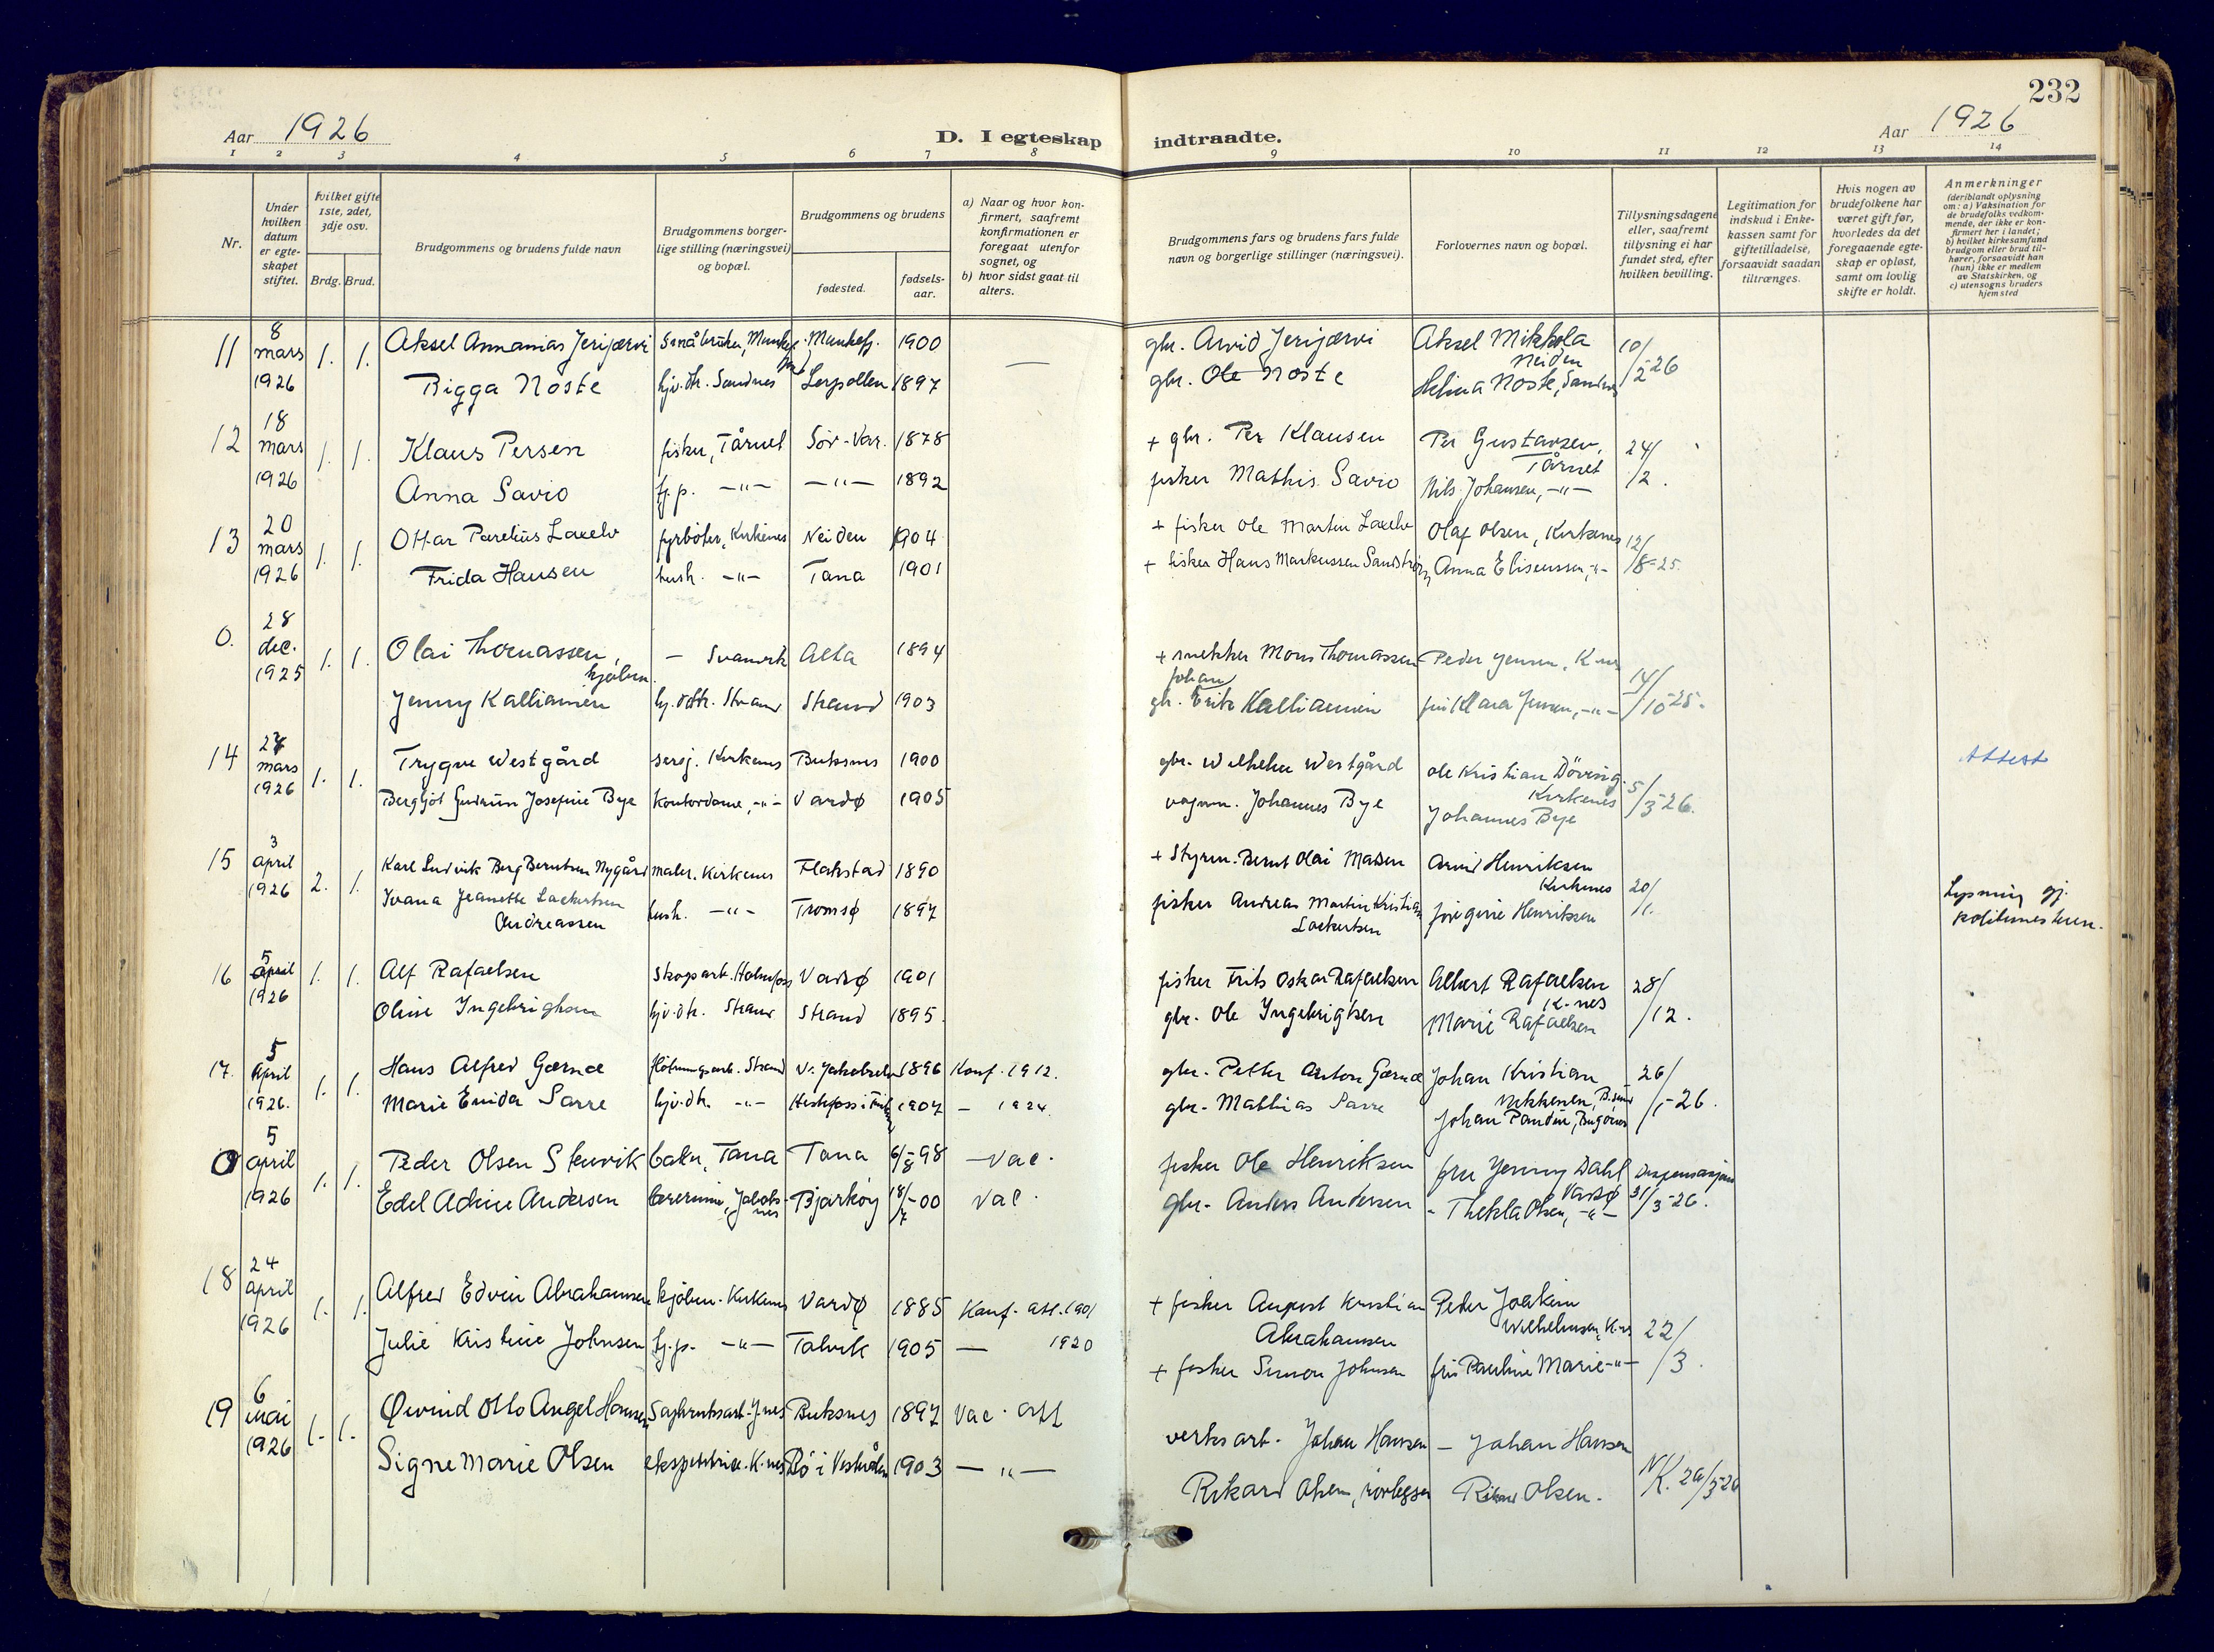 232
Aar 1926
D. I egteskap indtraadte.
Aar 1926
1 2 3 4 5 6 7 8 9 10 11 12 13 14
Nr.
Under hvilken datum er egte-skapet stiftet.
Hvilket gifte 1ste, 2det, 3dje osv.
Brdg. Brud.
Brudgommens og brudens fulde navn
Brudgommens borger-lige stilling (næringsvei) og bopæl.
Brudgommens og brudens
fødested.
fødsels-aar.
a) Naar og hvor kon-firmert, saafremt konfirmationen er foregaat utenfor sognet, og
b) hvor sidst gaat til alters.
Brudgommens fars og brudens fars fulde navn og borgerlige stillinger (næringsvei).
Forlovernes navn og bopæl.
Tillysningsdagene eller, saafremt tillysning ei har fundet sted, efter hvilken bevilling.
Legitimation for indskud i Enke-kassen samt for giftetilladelse, forsaavidt saadan tiltrænges.
Hvis nogen av brudefolkene har været gift før, hvorledes da det foregaaende egte-skap er opløst, samt om lovlig skifte er holdt.
Anmerkninger (deriblandt oplysning om: a) Vaksination for de brudefolks vedkom-mende, der ikke er kon-firmert her i landet; b) hvilket kirkesamfund brudgom eller brud til-hører, forsaavidt han (hun) ikke er medlem av Statskirken, og c) utensogns bruders hjemsted
11 8 mars 1926 1. 1. Aksel Annanias Jerijærvi Småbruker, Munkefj. Munkefj. 1900 — gbr. Arvid Jerijærvi Aksel Mikkola Neiden 10/2-26
Bigga Noste hjv. dtr. Sandnes Lerpollen 1897 gbr. Ole Noste Helina Noste, Sandnes
12 18 mars 1926 1. 1. Klaus Persen fisker, Tårnet Sør-Var. 1878 + gbr. Per Klausen Per Gustavsen, Tårnet 24/2.
Anna Savio tj.p. -"- -"- 1892 fisker Mathis Savio Nils Johansen, -"-
13 20 mars 1926 1. 1. Ottar Parelius Laxelv fyrbøter, Kirkenes Neiden 1904 + fisker Ole Martin Laxelv Olaf Olsen, Kirkenes 12/8-25.
Frida Hansen hush. -"- Tana 1901 + fisker Hans Markussen Sandstrøm Anna Eliseussen, -"-
0. 28 dec. 1925 1. 1. Olai Thomassen, kjøbm. - Svanvik Alta 1894 + snekker Mons Thomassen Peder Jensen, K-nes 14/10-25.
Jenny Kalliainen hj. dtr. Strand Strand 1903 gbr. Johan Erik Kalliainen fru Klara Jensen, -"-
14 mars 1926 1. 1. Trygve Westgård sersj. Kirkenes Buksnes 1900 gbr. Wilhelm Westgård Ole Kristian Døving Kirkenes 5/3-26. Attest
Bergljot Gudrun Josefine Bye Kontordame, -"- Vardø 1905 vognm. Johannes Bye Johannes Bye
15 3 april 1926 2. 1. Karl Ludvik Berg Berntsen Nygård maler. Kirkenes Flakstad 1890 + Styrm. Bernt Olai Madsen Arvid Henriksen Kirkenes 20/1. Lysning gj. politimesteren.
Ivana Jeanette Lockertsen Andreassen hush. -"- Tromsø 1897 fisker Andreas Martin Kristian Lockertsen Henriksen
16 5 april 1926 1. 1. Alf Rafaelsen Skogsarb. Holmfoss Vadsø 1901 fisker Frits Oskar Rafaelsen Albert Rafaelsen K-nes 28/12.
Oline Ingebrigtsen hjv. dtr. Strand Strand 1895. gbr. Ole Ingebrigtsen Marie Rafaelsen
17. 5 april 1926. 1. 1. Hans Alfred Gærnæ Fløtningsarb. Strand V. Jakobselv 1896 Konf. 1912. gbr. Petter Anton Gærnæ Johan Kristian 26/1-26.
Marie Enida Sarre hjv. dtr. -"- 1907 - 1924 gbr. Mathias Sarre Johan Pandin, Bugønes
0 5 april 1926 1. 1. Peder Olsen Stenvik baker, Tana Tana 6/8-98 - Vac. fisker Ole Henriksen fru Jenny Dahl Vadsø Dispensasjon 31/3-26.
Edel Adine Andersen Jakobsnes Bjarkøy 18/7-00 Vac. gbr. Anders Andersen - Thekla Olsen, -"-
18 24 april 1926 1. 1. Alfred Edvin Abrahamsen kjøbm. Kirkenes Vardø 1885 Konf. att. 1901 + fisker August Kristian Abrahamsen Peder Joakim Wilhelmsen, K-nes 22/3.
Julie Kristine Johnsen tj.p. -"- Talvik 1905 - 1920 + fisker Simon Johnsen fru Pauline Marie -"-
19 6 mai 1926 1. 1. Øivind Otto Angel Hansen Sagbruksarb. J-nes Buksnes 1897 Vac. att verksarb. Johan Hansen - Johan Hansen N/K. 20/3-26
Signe Marie Olsen ekspeditrise. K-nes Bø i Vesterålen 1903 -"- Rikard Olsen, rørlegger Rikard Olsen.